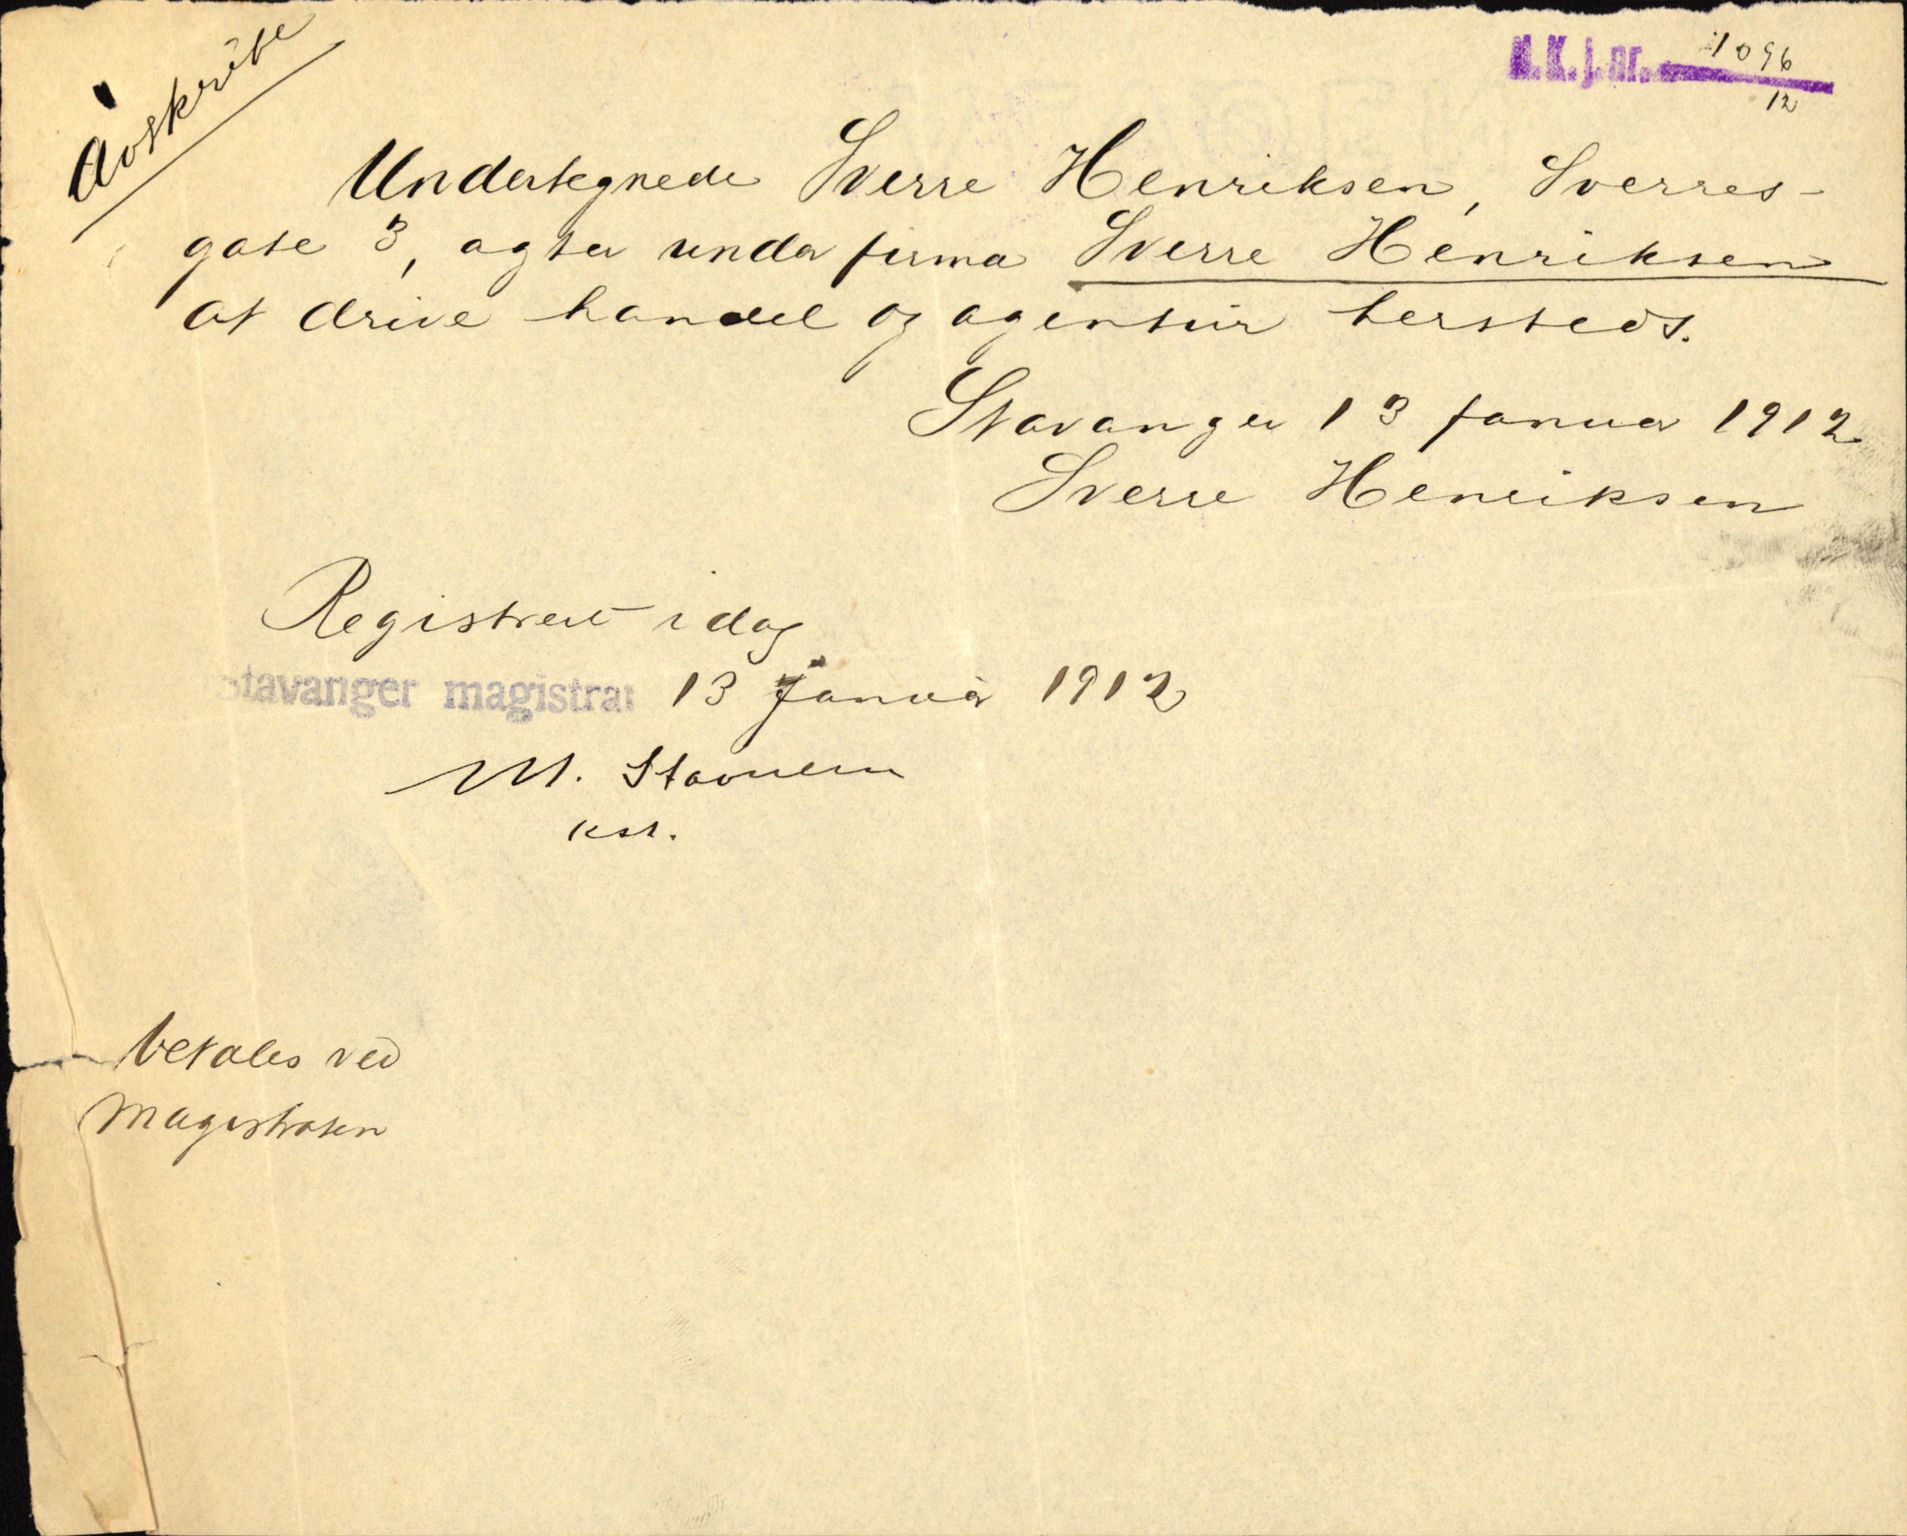 Avskrift
N.K.j.nr. 1096
12
Undertegnede Sverre Henriksen, Sverres-
gate 3, agter under firma Sverre Henriksen
at drive handel og agentur hersteds.
Stavanger 13 januar 1912
Sverre Henriksen
Registrert idag
Stavanger magistrat 13 januar 1912
M. Stavnem
kst.
betales ved
magistraten